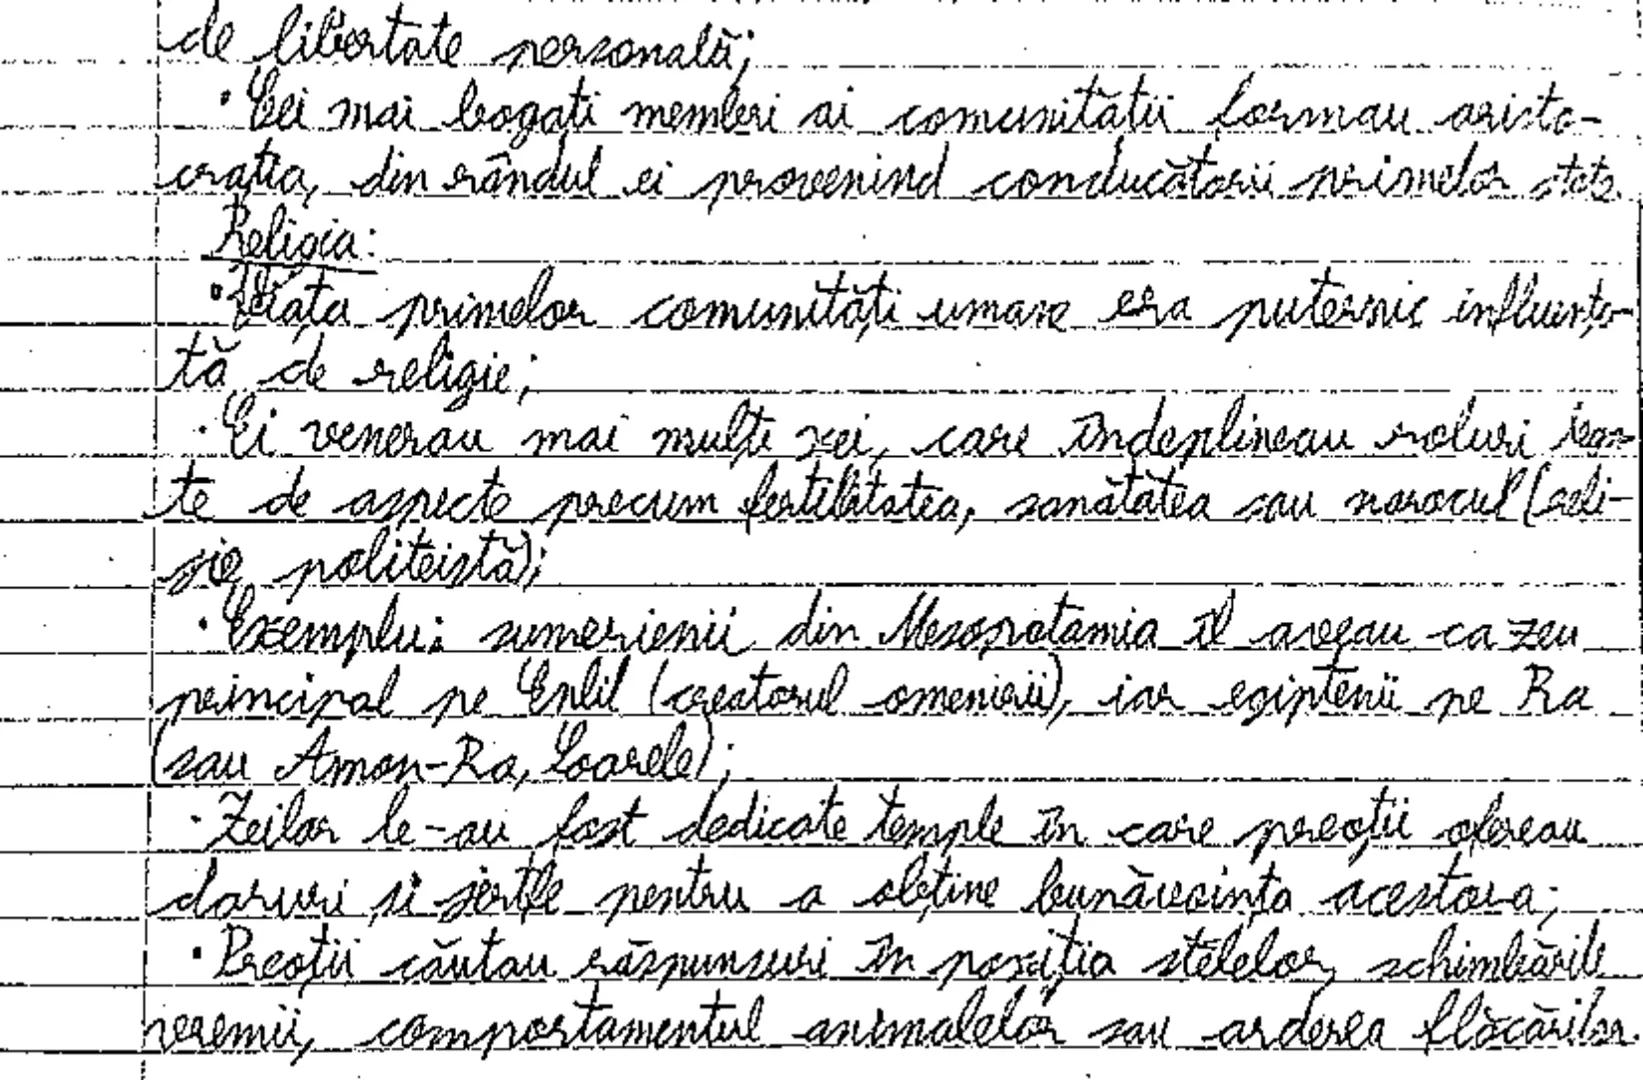 de libertate personală;
• Cei mai bogați membri ai comunității formau aristo-
crația, din rândul ei provenind conducătorii primelor state.
Religia:
• Viața primelor comunități umane era puternic influența-
tă de religie;
• Ei venerau mai mulți zei, care îndeplineau roluri lega-
te de aspecte precum fertilitatea, sănătatea sau norocul (reli-
gie politeistă);
• Exemplu: sumerienii din Mesopotamia îl aveau ca zeu
principal pe Enlil (creatorul omenirii), iar egiptenii pe Ra
(sau Amon-Ra, Soarele);
• Zeilor le-au fost dedicate temple în care preoții ofereau
daruri și jertfe pentru a obține bunăvoința acestora;
• Preoții căutau răspunsuri în poziția stelelor, schimbările
vremii, comportamentul animalelor sau arderea flăcărilor.